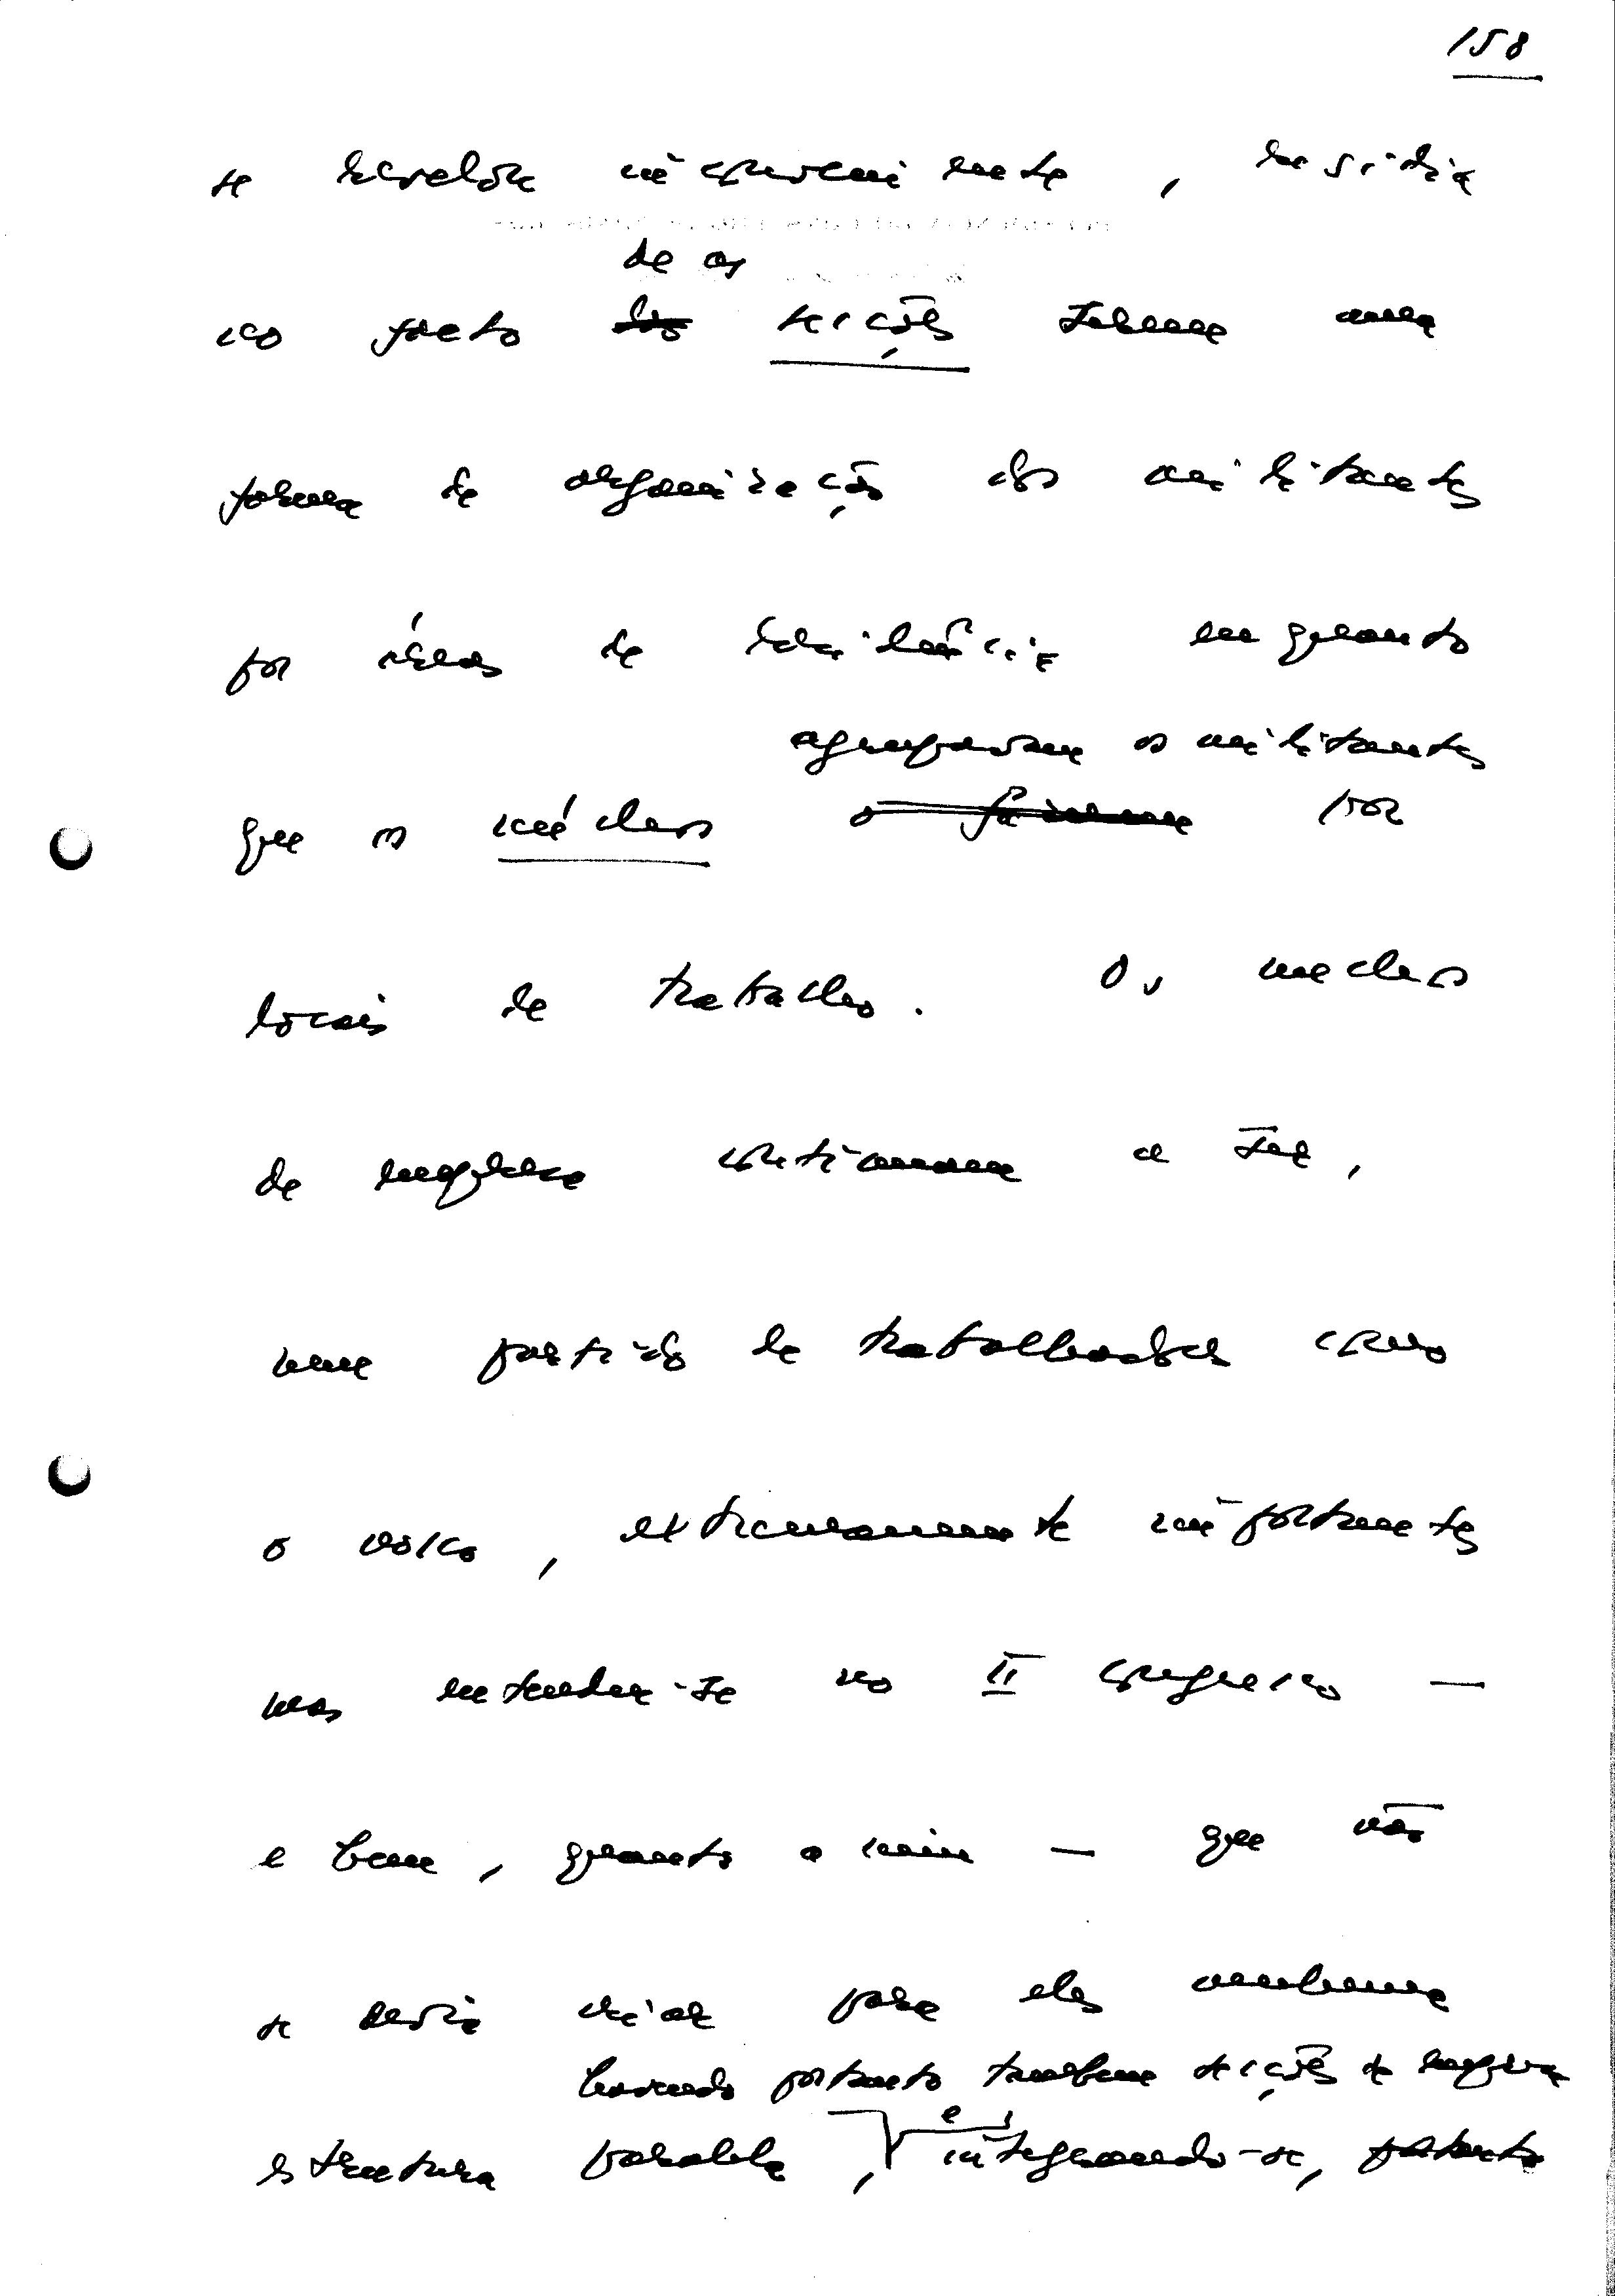 158
se revelou inconveniente, residia
de as
no facto dos secções serem uma
forma de organização dos militantes
por áreas de residência enquanto
agrupavam os militantes
que os núcleos o faziam por
locais de trabalho. Os nucleos
de empresa continuam a ser,
num partido de trabalhadores como
o nosso, extremamente importantes
mas entendeu-se no II Congresso —
e bem, quanto a mim — que não
se devia criar para eles nenhuma
havendo portanto tambem secções de empresa
estrutura paralela, e integrando-se, portanto